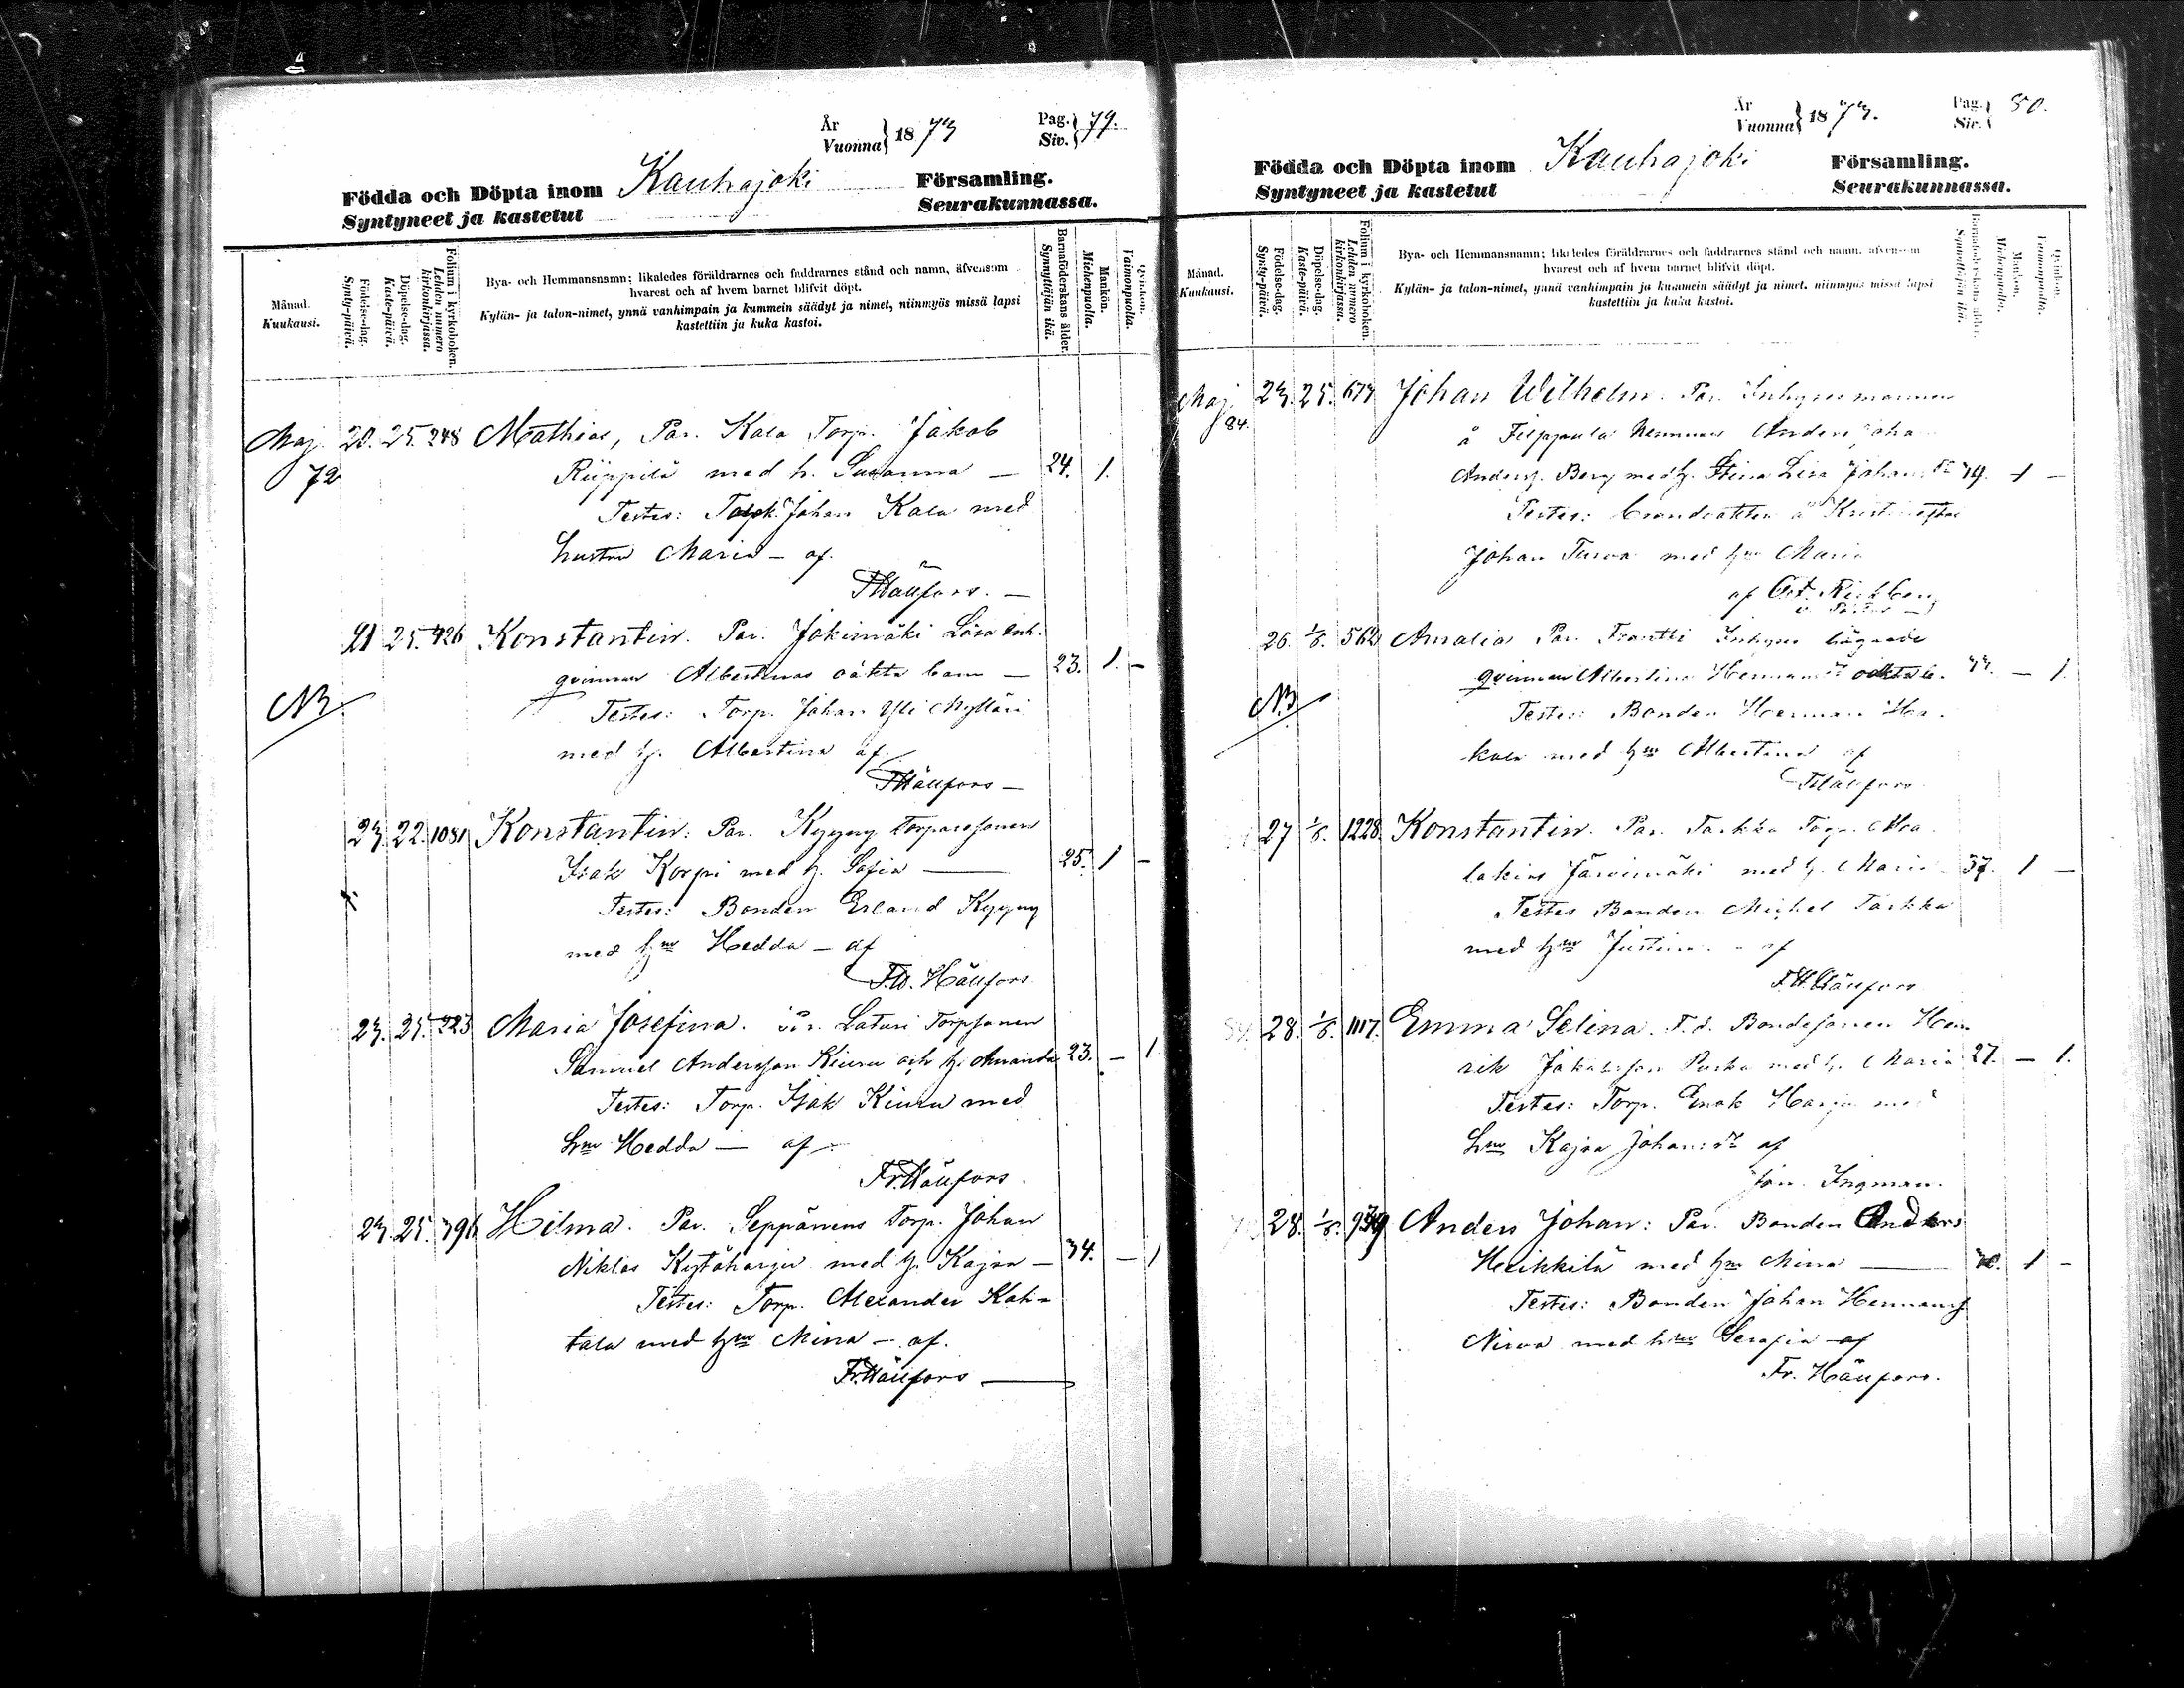 År
Vuonna } 1873
Pag.
Siv. } 79.
Födda och Döpta inom Kauhajoki Församling.
Syntyneet ja kastetut Seurakunnassa.
Månad.
Kuukausi.
Födelse-dag.
Synty-päivä.
Döpelse-dag.
Kaste-päivä.
Folium i kyrkoboken.
Lehden numero kirkonkirjassa.
Bya- och Hemmansnamn; likaledes föräldrarnes och faddrarnes stånd och namn, äfvensom
hvarest och af hvem barnet blifvit döpt.
Kylän- ja talon-nimet, ynnä vanhimpain ja kummein säädyt ja nimet, niinmyös missä lapsi
kastettiin ja kuka kastoi.
Barnaföderskans ålder.
Synnyttäjän ikä.
Mankön.
Miehenpuolia.
Qvinkön.
Vaimonpuolia.
Maj 20. 25. 248 Mathias, Par. Kala Torp. Jakob
72 Riippilä med h. Susanna — 24. 1.
Testes: Johan Kala med
hustru Maria — af
Häufors. —
21 25. 426 Konstantin. Par. Jokimäki Lösa inh.
qvinnan Albertinas oäkta barn — 23. 1. —
NB. Testes: Torp. Johan Yli Mylläri
med h. Albertina af
Häufors —
23. 22. 1081 Konstantin: Par. Kyyny torparesonen
Isak Korpi med h. Sofia — 25. 1 —
Testes: Bonden Erland Kyyny
med hru Hedda — af
F.W. Häufors
23. 25. 323 Maria Josefina. Par. Laturi Torpsonen
Samuel Andersson Kiuru och h. Amanda 23. — 1
Testes: Torp. Isak Kiuru med
hru Hedda — af
Fr. Häufors.
23. 25. 396 Hilma. Par. Seppänens Torp. Johan
Niklas Kytöharju med h. Kajsa — 34. — 1
Testes: Torp. Alexander Kah-
tala med hru Mina — af.
Fr. Häufors —
År
Vuonna } 1873.
Pag.
Siv. } 80.
Födda och Döpta inom Kauhajoki Församling.
Syntyneet ja kastetut Seurakunnassa.
Månad.
Kuukausi.
Födelse-dag.
Synty-päivä.
Döpelse-dag.
Kaste-päivä.
Folium i kyrkoboken.
Lehden numero kirkonkirjassa.
Bya- och Hemmansnamn; likaledes föräldrarnes och faddrarnes stånd och namn, äfvensom
hvarest och af hvem barnet blifvit döpt.
Kylän- ja talon-nimet, ynnä vanhimpain ja kummein säädyt ja nimet, niinmyös missä lapsi
kastettiin ja kuka kastoi.
Barnaföderskans ålder.
Synnyttäjän ikä.
Mankön.
Miehenpuolia.
Qvinkön.
Vaimonpuolia.
Maj 23. 25. 673 Johan Wilhelm. Par. Inhyses mannen
84. å Filppula hemman Anders Joha
Anders. Berg med h. Stina Lisa Johans dr 39. 1 —
Testes:
Johan Turva med hru Maria
af
26. 1/6. 562 Amalia Par. Frantti Inhyses
qvinnan Albertina Hermans dr oäkta b. — 1.
NB Testes: Bonden Herman Ha-
kala med hru Albertina af
Häufors
27 1/6. 1228. Konstantin. Par. Tarkka Torp. Ma-
lakias Järvimäki med h. Maria 37. 1 —
Testes Bonden Michel Tarkka
med hru Justina — af
F.W. Häufors
28. 1/6. 1117. Emma Selina. Bondesonen Hen-
rik Jakobsson Puska med h. Maria 27. — 1.
Testes: Torp. Enok Harju med
hru Kajsa Johans dr af
Ingman.
28. 1/6. 939 Anders Johan: Par. Bonden Anders
Heikkilä med hru Mina — 1 —
Testes: Bonden Johan Hermans
Nirva med hru Serafia af
Fr. Häufors.